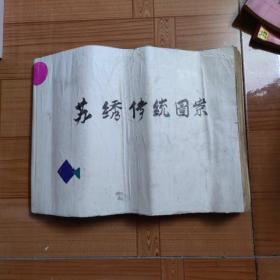 苏绣传统图案